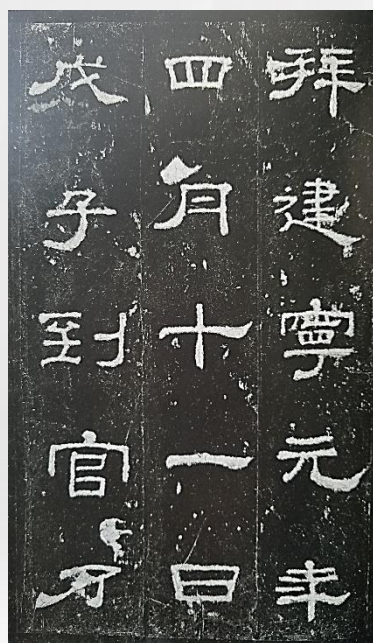 拜建寧元年
四月十一日
戊子到官乃